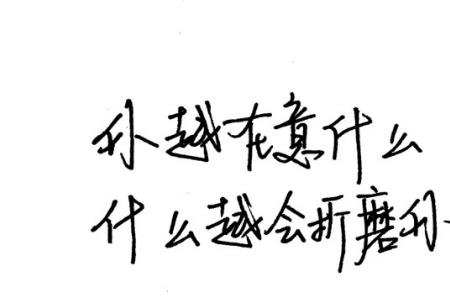 你越在意什么
什么越会折磨你